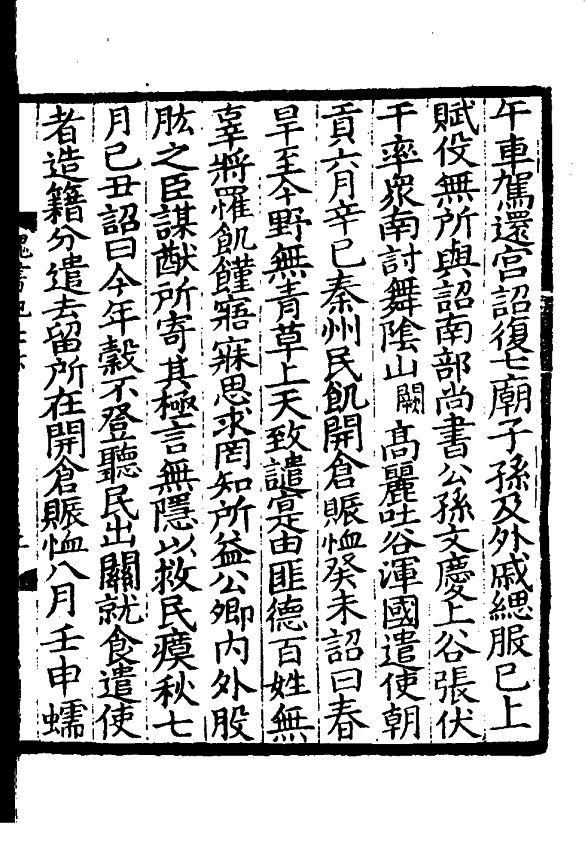 午車駕還宮詔復七廟子孫及外戚緦服已上
賦役無所與詔南部尚書公孫文慶上谷張伏
千率衆南討舞陰山闕高麗吐谷渾國遣使朝
貢六月辛巳秦州民飢開倉賑恤癸未詔曰春
旱至今野無青草上天致譴寔由匪德百姓無
辜將罹飢饉寤寐思求罔知所益公卿內外股
肱之臣謀猷所寄其極言無隱以救民瘼秋七
月己丑詔曰今年穀不登聽民出關就食遣使
者造籍分遣去留所在開倉賑恤八月壬申蠕